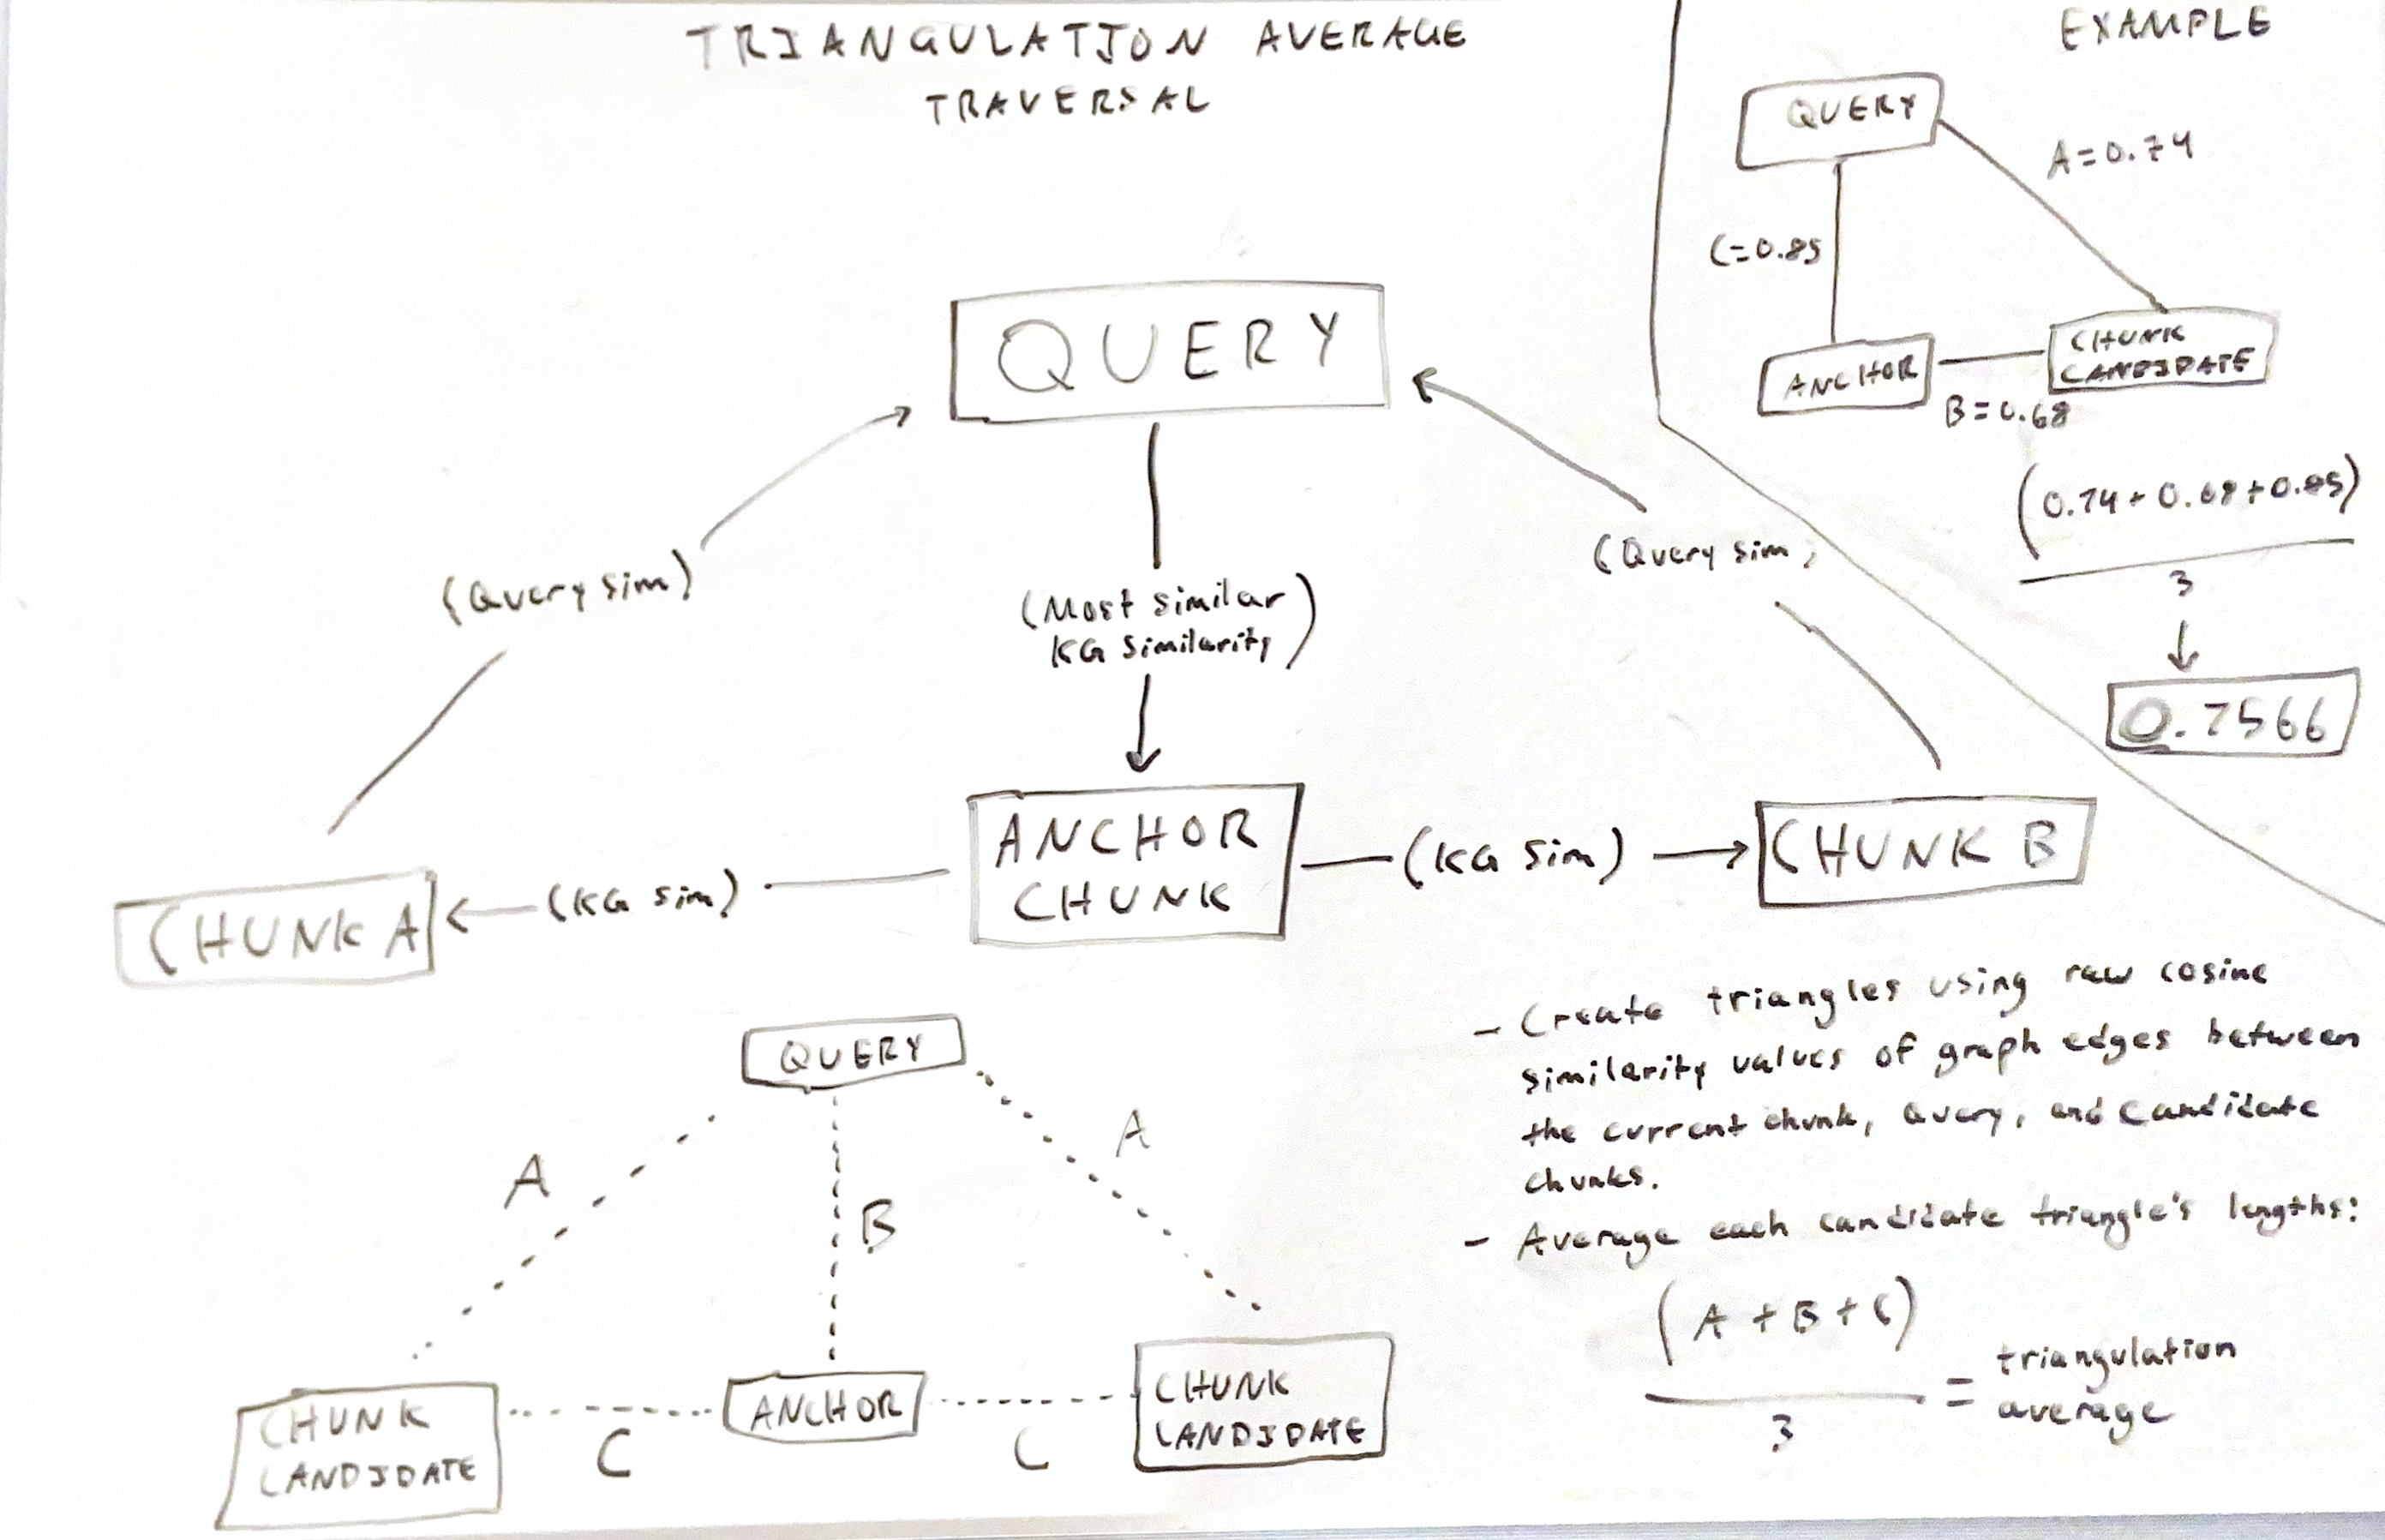 TRIANGULATION AVERAGE
TRAVERSAL
QUERY
(Query sim)
(Most similar
KG similarity)
(Query sim)
ANCHOR
CHUNK
CHUNK A
(KG sim)
(KG sim)
CHUNK B
QUERY
A
B
A
CHUNK
CANDIDATE
C
ANCHOR
C
CHUNK
CANDIDATE
EXAMPLE
QUERY
A=0.74
C=0.85
ANCHOR
CHUNK
CANDIDATE
B=0.68
(0.74+0.68+0.85)
3
0.7566
- Create triangles using raw cosine
similarity values of graph edges between
the current chunk, query, and candidate
chunks.
- Average each candidate triangle's lengths:
(A+B+C)
3
= triangulation
average